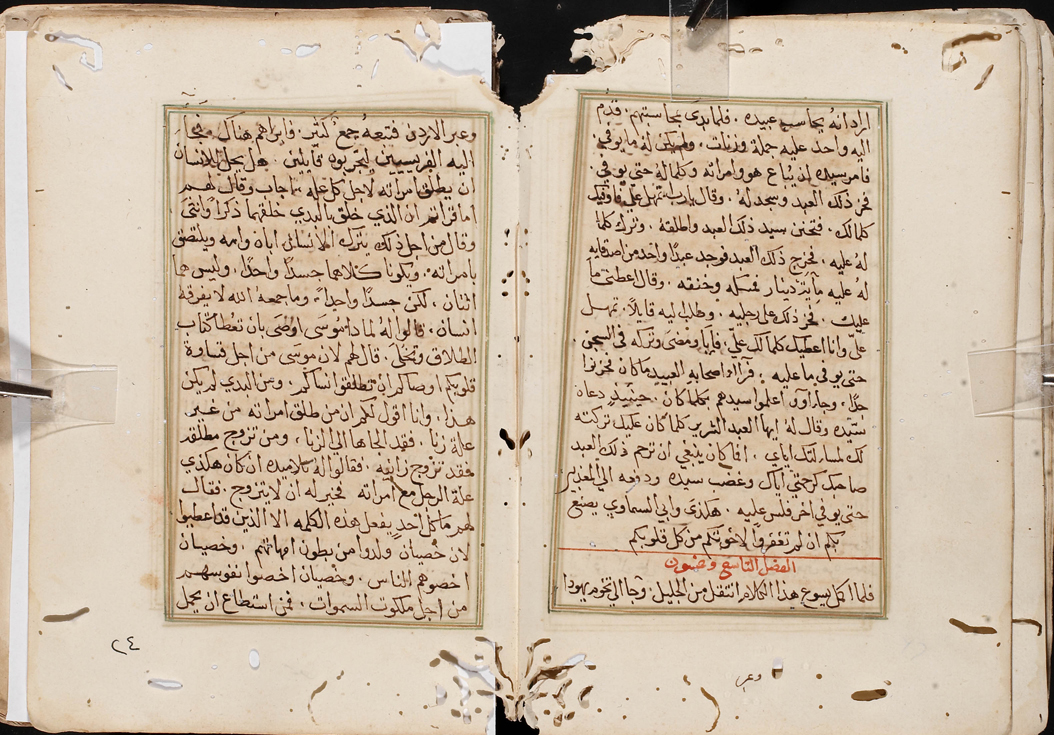 اراد انه يحاسب عبيده . فلما بدى بمحاسبتهم . قدم
اليه واحد عليه جملة وزنات . ولم يكن له ما يوفي .
فامر سيده ان يباع هو وامراته وكلما له حتى يوفي .
فخر ذلك العبد وسجد له . وقال يا رب تمهل علي فاوفيك
كلما لك . فتحنن سيد ذلك العبد واطلقه . وترك كلما
له عليه . فخرج ذلك العبد فوجد عبدا واحد من اصدقايه
له عليه مايتي دينار فمسكه وخنقه . وقال اعطني ما
عليك . فخر ذلك على رجليه . وطلب اليه قايلا . تمهل
علي وانا اعطيك كلما لك علي . فابا ومضى وتركه في السجن
حتى يوفي ما عليه . فراوا اصحابه العبيد ما كان فحزنوا
جدا . وجاوا اعلموا سيدهم بكلما كان . حينيذ دعاه
سيده وقال له ايها العبد الشرير كلما كان عليك تركته
لك لمسالتك اياي . افما كان ينبغي ان ترحم ذلك العبد
صاحبك كرحمتي اياك وغضب سيده ودفعه الى المعذبين
حتى يوفي اخر فلس عليه . هكذى وابي السماوي يصنع
بكم ان لم تغفروا لاخوتكم من كل قلوبكم
الفصل التاسع وخمسون
فلما اكمل يسوع هذا الكلام انتقل من الجليل . وجا الى تخوم يهودا
وعبر
وعبر الاردن فتبعه جمع كثير . فابراهم هناك . فجا
اليه الفريسيين ليجربوه قايلين . هل يحل للانسان
ان يطلق امراته لاجل كل علة . اجاب وقال لهم
اما قراتم ان الذي خلق بالبدي خلقهما ذكرا وانثى
وقال من اجل ذلك يترك الانسان اباه وامه ويلتصق
بامراته . ويكونا كلاهما جسدا واحدا . وليس هما
اثنان . لكن جسدا واحدا . وما جمعه الله لا يفرقه
انسان . قالوا له لماذا موسى اوصى بان تعطا كتاب
الطلاق وتخلى . قال لهم لان موسى من اجل قساوة
قلوبكم اوصاكم ان تطلقوا نساكم . ومن البدي لم يكن
هذا . وانا اقول لكم ان من طلق امراته من غير
علة زنا . فقد الجاها الى الزنا . ومن تزوج مطلقه
فقد تزوج زانيه . فقالوا له تلاميذه ان كان هكذى
علة الرجل مع امراته فخير له ان لا يتزوج . فقال
لهم ما كل احد يفعل هذه الكلمه الا الذين قد اعطيوا
لان خصيان ولدوا من بطون امهاتهم . وخصيان
اخصوهم الناس . وخصيان اخصوا نفوسهم
من اجل ملكوت السموات . فمن استطاع ان يحمل
٢٤